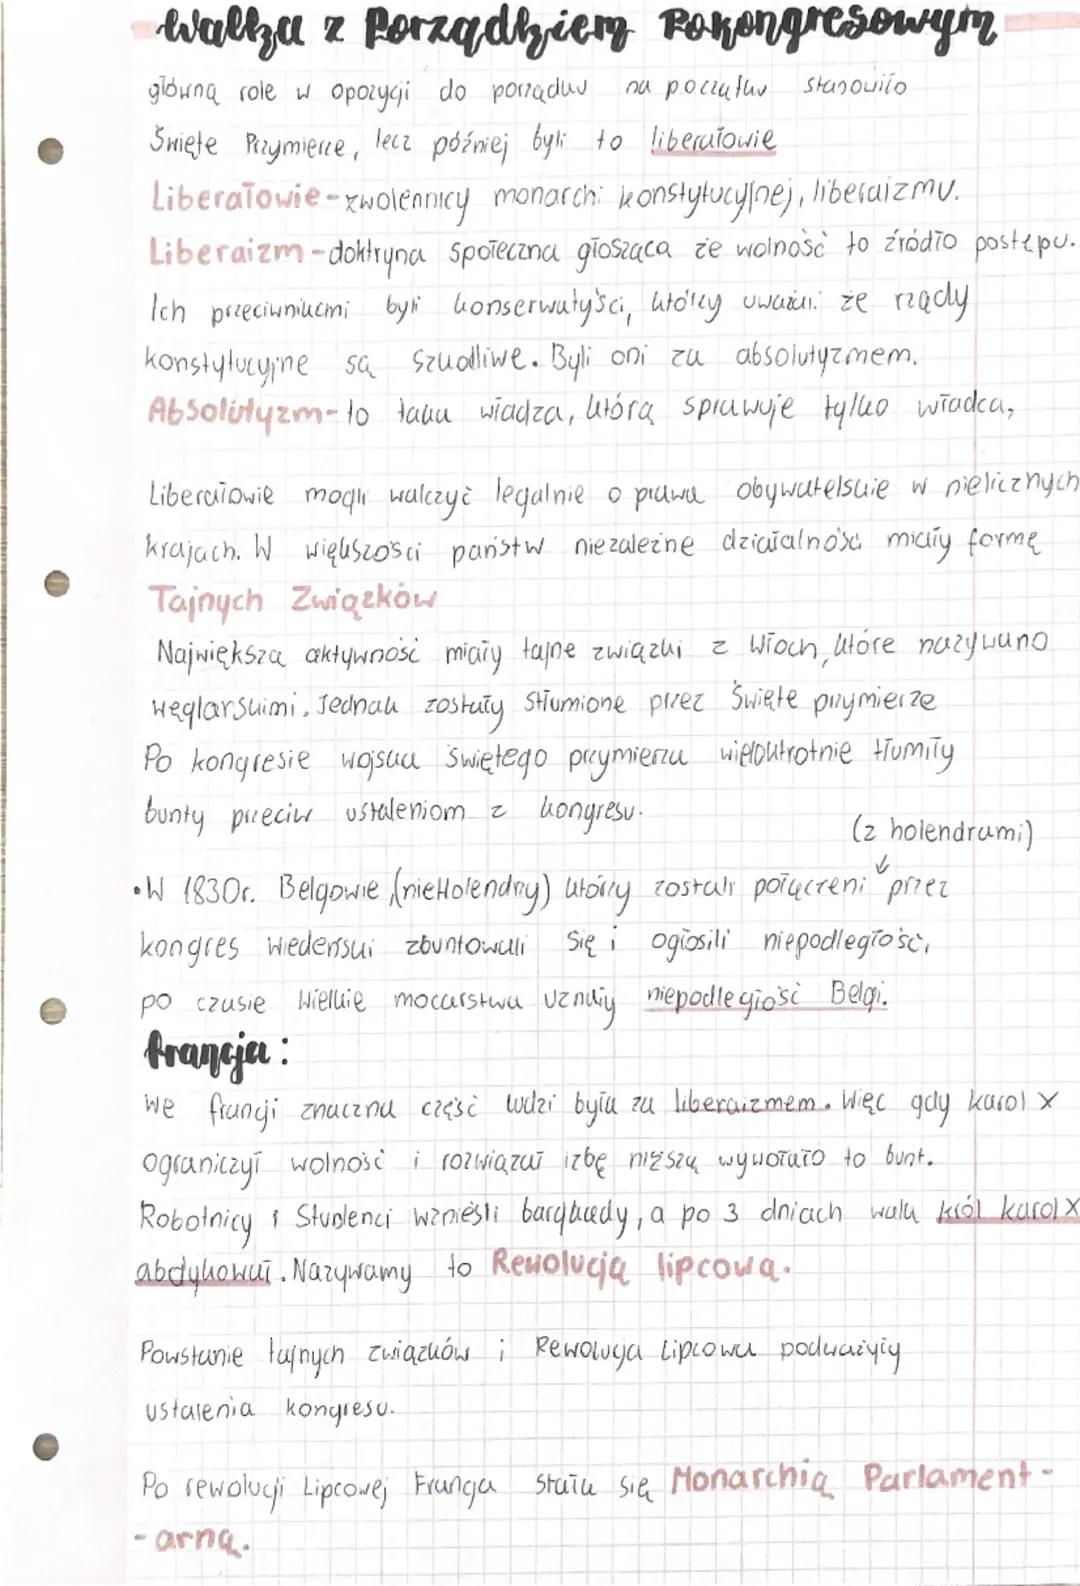 Walka z Porządkiem Pokongresowym
główną role w opozycji do porządku na początku stanowiło
Święte Przymierze, lecz później byli to liberałowie
Liberałowie - zwolennicy monarchi konstytucyjnej, liberaizmu.
Liberaizm - doktryna społeczna głosząca że wolność to źródło postępu.
Ich przeciwnikami byli konserwatyści, którzy uważali że rządy
konstytucyjne są szkodliwe. Byli oni za absolutyzmem.
Absolutyzm - to taka władza, którą sprawuje tylko władca,
Liberałowie mogli walczyć legalnie o prawa obywatelskie w nielicznych
krajach. W większości państw niezależne działalności miały formę
Tajnych Związków
Największą aktywność miały tajne związki z Włoch, które nazywano
węglarskimi. Jednak zostały stłumione przez Święte przymierze
Po kongresie wojska świętego przymierza wielokrotnie tłumiły
bunty przeciw ustaleniom z kongresu.
(z holendrami)
• W 1830r. Belgowie (nieHolendrzy) którzy zostali połączeni przez
kongres wiedeński zbuntowali się i ogłosili niepodległość,
po czasie Wielkie mocarstwa uznały niepodległość Belgi.
francja:
We francji znaczna część ludzi była za liberaizmem. Więc gdy karol X
ograniczył wolność i rozwiązał izbę niższą wywołało to bunt.
Robotnicy i Studenci wznieśli barykady, a po 3 dniach walk król karol X
abdykował. Nazywamy to Rewolucją lipcową.
Powstanie tajnych związków i Rewolucja Lipcowa podważyły
ustalenia kongresu.
Po rewolucji Lipcowej Francja stała się Monarchią Parlament-
- arną.